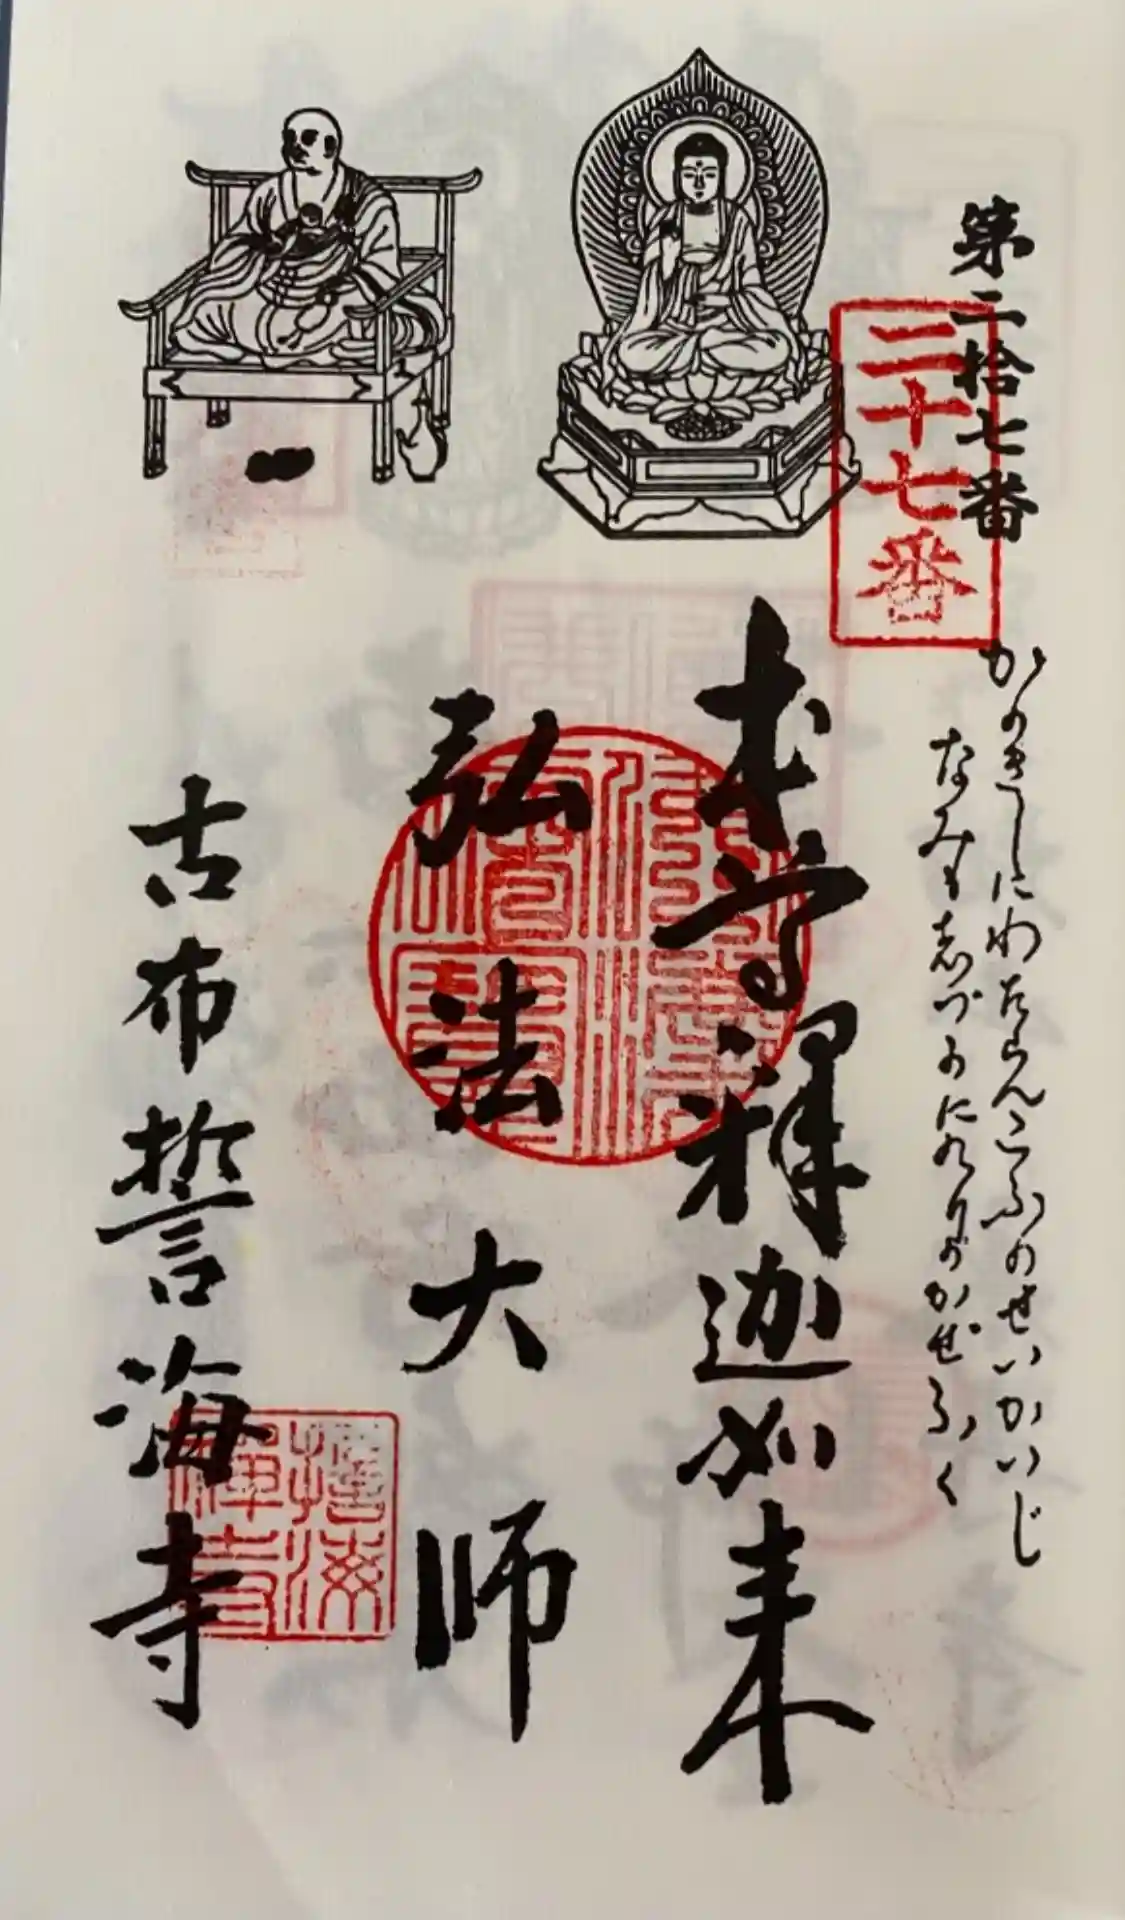 第二拾七番
二十七番
かのきしにわたらんこふのせいかいじ
なみも志づかにのりのかぜふく
本尊釋迦如来
弘法大師
古布誓海寺
誓海禪寺